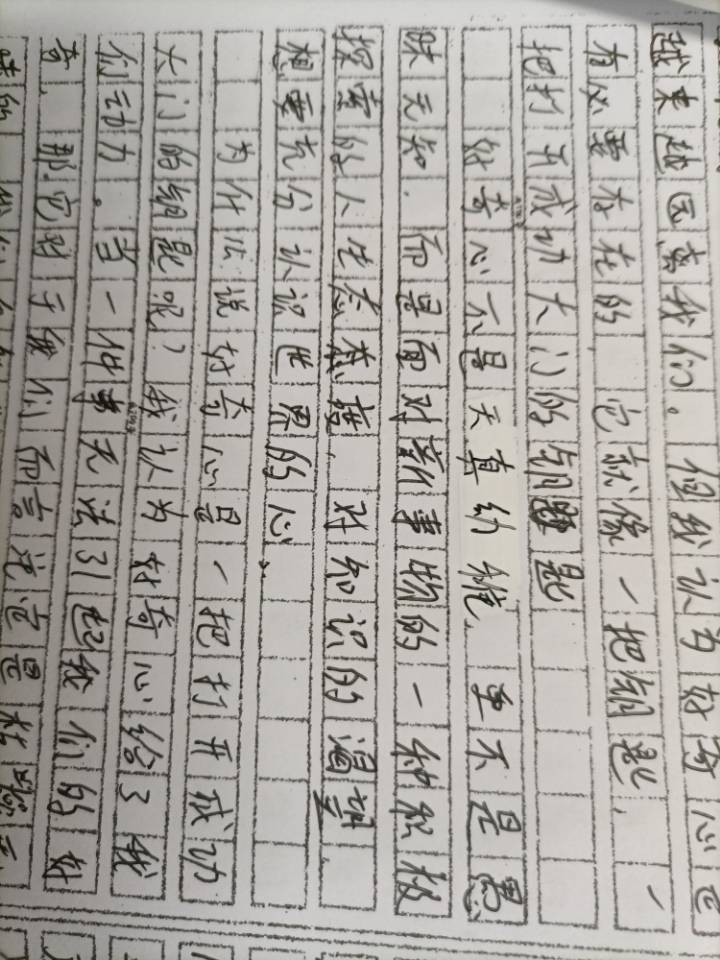 越来越远离我们。但我认为好奇心是
有必要存在的 它就像一把钥匙,一
把打开成功大门的钥匙
好奇心不是天真幼稚,更不是愚
昧无知.而是面对新事物的一种积极
探索的人生态度、对知识的渴望、
想要充分认识世界的心。
为什么说好奇心是一把打开成功
大门的钥匙呢?我认为好奇心给了我
们动力。当一件事无法引起我们的好
奇、那它对于我们而言